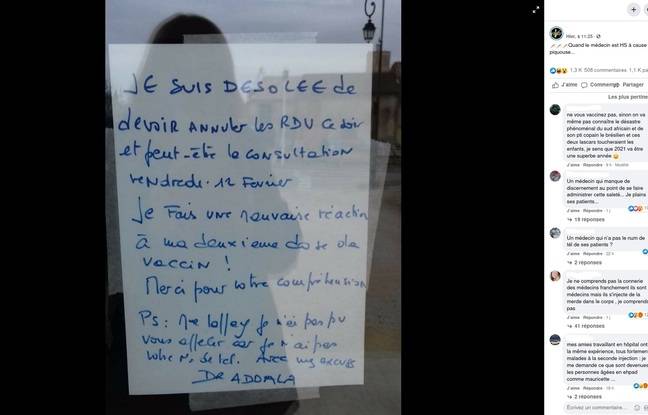 JE SUIS DESOLEE de
devoir ANNULER les RDV ce soir
et peut-être la consultation
vendredi 12 Février
Je Fais une mauvaise réaction
à ma deuxième dose de
vaccin !
Merci pour votre compréhension
Ps :
je n'ai pas pu
vous appeler car je n'ai pas
votre N° de tel. Avec mes excuses
DR ADDALA
Hier, à 11:25
Quand le médecin est HS à cause
piquouse...
1,3 K 508 commentaires 1,1 K pa
J'aime Comment Partager
Les plus pertine
ne vous vaccinez pas, sinon on va
même pas connaître le désastre
phénoménal du sud africain et de
son pti copain le brésilien et ces
deux lascars toucheraient les
enfants, je sens que 2021 va être
une superbe année
J'aime · Répondre · 9 h · Modifié
Un médecin qui manque de
discernement au point de se faire
administrer cette saleté... Je plains
ses patients...
J'aime · Répondre · 1 j
19 réponses
Un médecin qui n'a pas le num de
tél de ses patients ?
J'aime · Répondre · 22 h
2 réponses
Je ne comprends pas la connerie
des médecins franchement ils sont
médecins mais ils s'injecte de la
merde dans le corps , je comprends
pas
J'aime · Répondre · 1 j
41 réponses
mes amies travaillant en hôpital ont
la même expérience, tous fortement
malades à la seconde injection ; je
me demande ce que sont devenues
les personnes âgées en ehpad
comme mauricette ...
J'aime · Répondre · 18 h
2 réponses
Écrivez un commentaire...